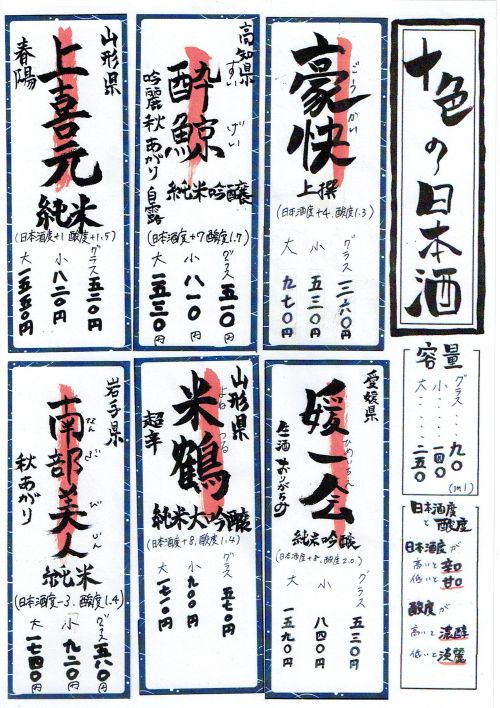 十色の日本酒
容量
グラス‥‥九〇
小‥‥一四〇
大‥‥二五〇
(ml)
日本酒度
と酸度
日本酒度が
高いと辛口
低いと甘口
酸度が
高いと濃醇
低いと淡麗
豪快
ごうかい
上撰
(日本酒度+4、酸度1.3)
グラス 三六〇円
小 五三〇円
大 九七〇円
高知県
酔鯨
すいげい
純米吟醸
吟麗秋あがり 白露
(日本酒度+7 酸度1.7)
グラス 五一〇円
小 八一〇円
大 一五三〇円
山形県
上喜元
純米
春陽
(日本酒度+1 酸度+1.5)
グラス 五二〇円
小 八二〇円
大 一五五〇円
愛媛県
媛一会
純米吟醸
生酒 おりがらみ
(日本酒度+8、酸度2.0)
グラス 五三〇円
小 八四〇円
大 一五九〇円
山形県
米鶴
よねつる
純米大吟醸
超辛
(日本酒度+8、酸度1.4)
グラス 五七〇円
小 九〇〇円
大 一七一〇円
岩手県
南部美人
なんぶびじん
純米
秋あがり
(日本酒度-3、酸度1.4)
グラス 五八〇円
小 九二〇円
大 一七四〇円